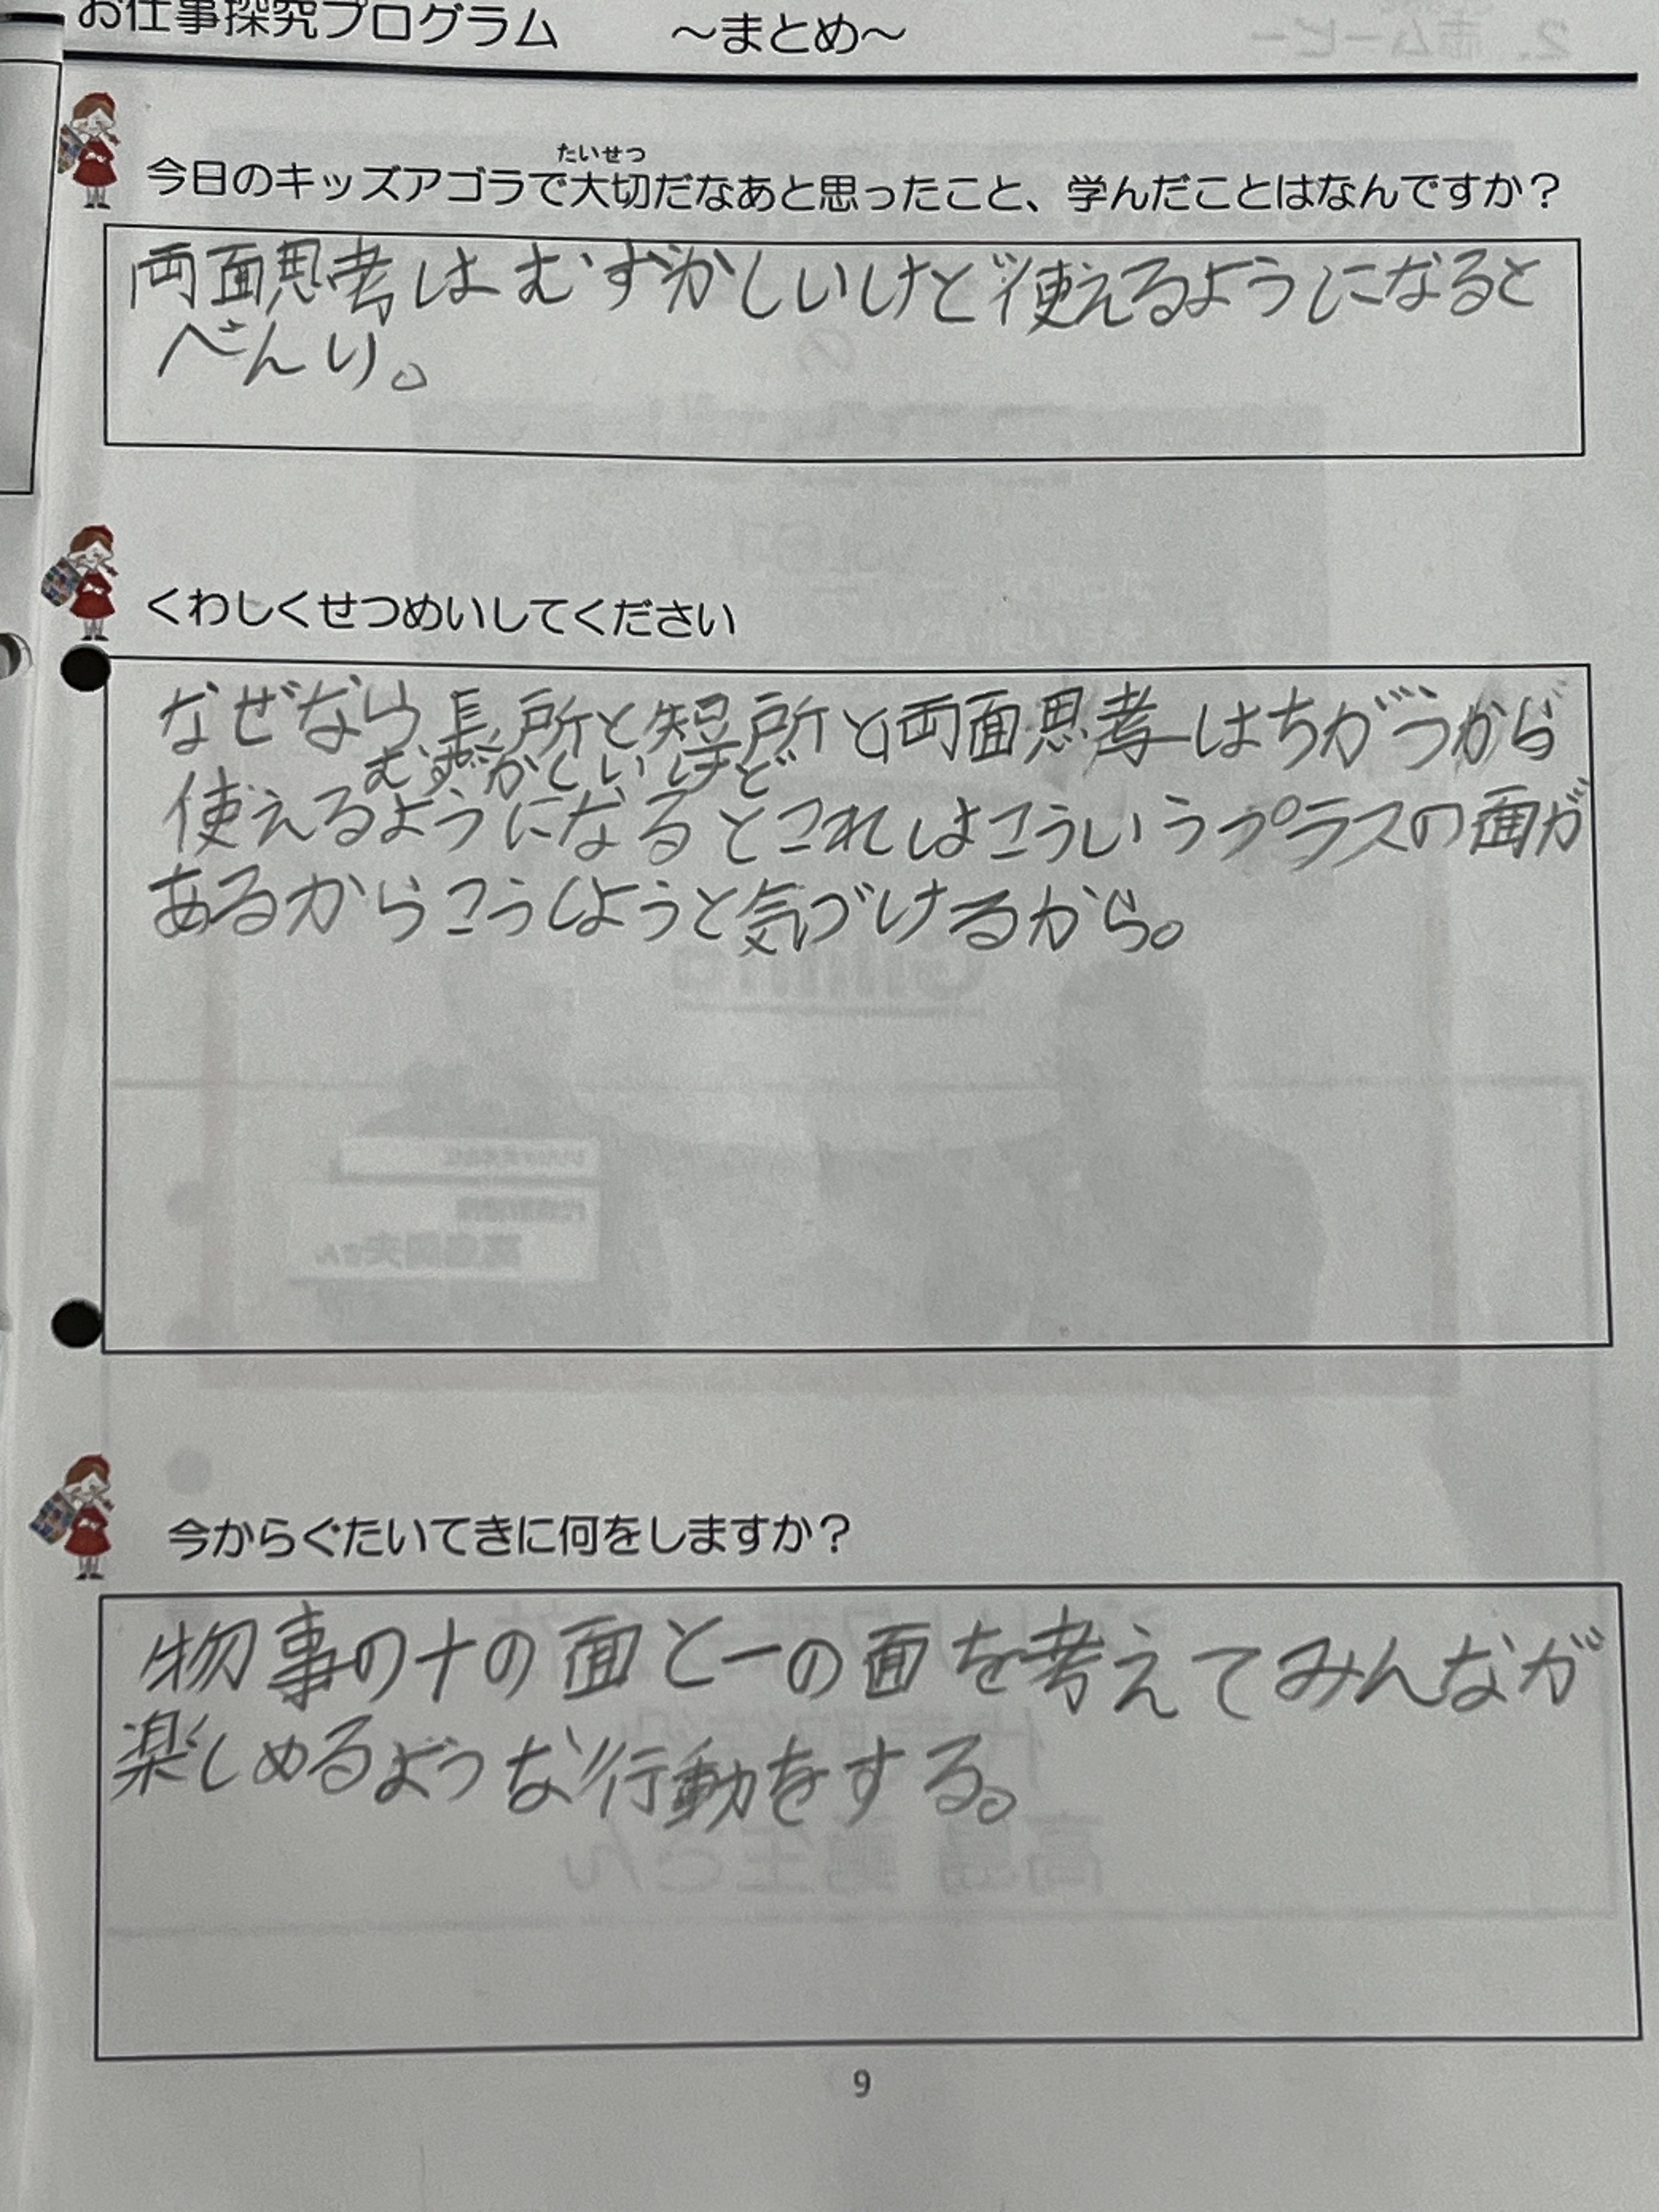 お仕事探究プログラム　～まとめ～
たいせつ
今日のキッズアゴラで大切だなあと思ったこと、学んだことはなんですか？
両面思考はむずかしいけど使えるようになると
べんり。
くわしくせつめいしてください
なぜなら長所と短所と両面思考はちがうから
むずかしいけど
使えるようになるとこれはこういうプラスの面が
あるからこうしようと気づけるから。
今からぐたいてきに何をしますか？
物事の＋の面と－の面を考えてみんなが
楽しめるような行動をする。
9